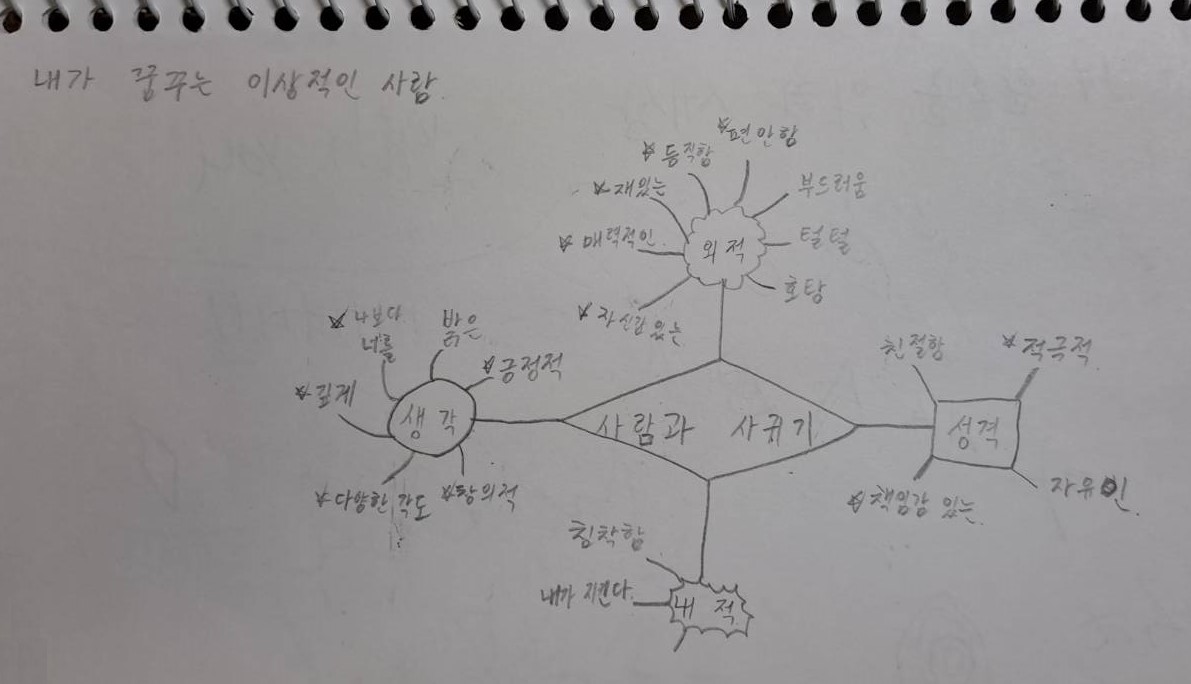 내가 꿈꾸는 이상적인 사람.
☆편안함
☆듬직함
☆재있는
부드러움
☆매력적인
외적
털털
호탕
☆자신감 있는
☆나보다
너를
밝은
☆긍정적
☆깊게
생각
☆다양한 각도
☆창의적
사람과 사귀기
친절함
☆적극적
성격
☆책임감 있는
자유인
침착함
내가 지킨다.
내적